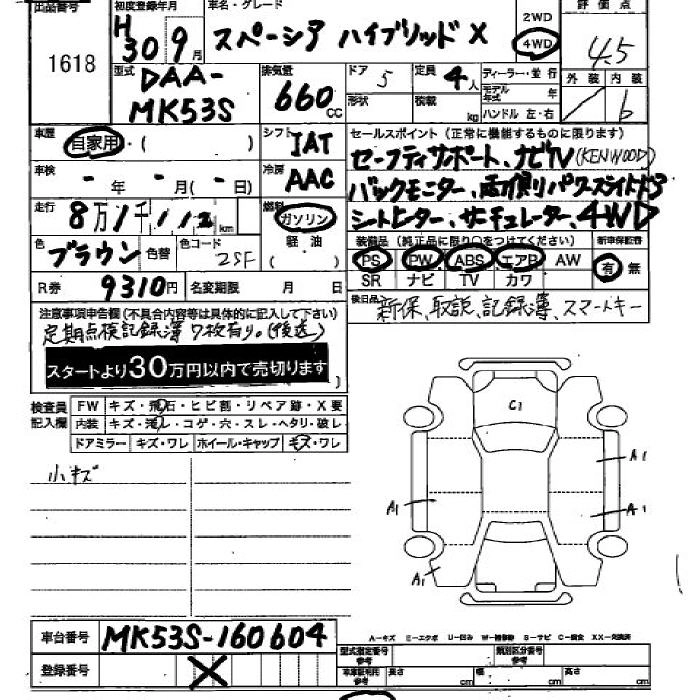 出品番号
1618
初度登録年月
H30年9月
車名・グレード
スペーシア ハイブリッド X
2WD
4WD
評価点
4.5
外装 内装
6
型式
DAA-
MK53S
排気量
660CC
ドア 5
形状
定員 4人
積載 kg
ディーラー・並行
モデル年式 年
ハンドル 左・右
車歴
自家用・( )
シフト IAT
セールスポイント(正常に機能するものに限ります)
セーフティサポート、ナビTV(KENWOOD)
バックモニター、両側パワースライドドア
シートヒーター、サーキュレーター、4WD
車検
- 年 - 月( - 日)
冷房 AAC
走行
8万1千112km
燃料
ガソリン
軽油
( )
色 ブラウン
色替
色コード 2SF
装備品(純正品に限り○をつけてください)
新車保証書
PS PW ABS エアB AW
SR ナビ TV カワ
有 無
R券 9310円
名変期限 月 日
後日品
新保、取説、記録簿、スマートキー
注意事項申告欄(不具合内容等は具体的に記入して下さい)
定期点検記録簿7枚有り。(後送)
スタートより30万円以内で売切ります
検査員
記入欄
FW キズ・飛石・ヒビ割・リペア跡・X要
内装 キズ・汚レ・コゲ・穴・スレ・ヘタリ・破レ
ドアミラー キズ・ワレ ホイール・キャップ キズ・ワレ
小キズ
C1
A1
A1
A1
A1
車台番号 MK53S-160604
登録番号 X
A-キズ E-エクボ U-凹み W-補修跡 S-サビ C-腐食 XX-交換済
型式指定番号
参考
類別区分番号
参考
車庫証明用
参考
長さ cm 幅 cm 高さ cm